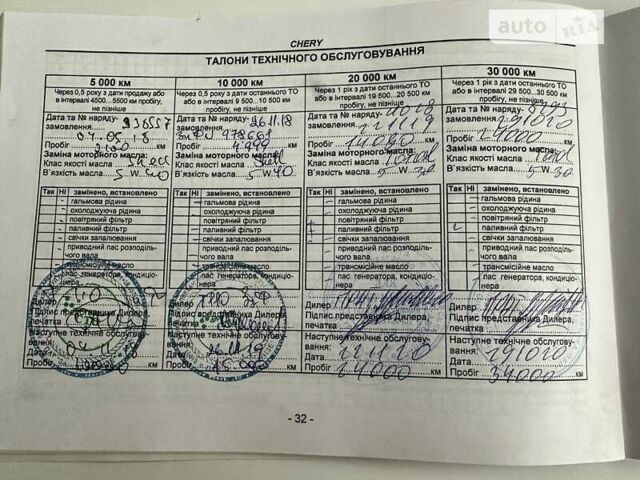 auto RIA
CHERY
ТАЛОНИ ТЕХНІЧНОГО ОБСЛУГОВУВАННЯ
5 000 км
Через 0,5 року з дати продажу або
в інтервалі 4500...5500 км пробігу,
не пізніше
Дата та № наряду-
замовлення
Пробіг км
Заміна моторного масла:
Клас якості масла Shell
В`язкість масла 5 W 40
Так Ні замінено, встановлено
гальмова рідина
охолоджуюча рідина
повітряний фільтр
паливний фільтр
свічки запалювання
приводний пас розподіль-
чого вала
трансмісійне масло
пас генератора, кондиціо-
нера
Дилер
Підпис представника Дилера,
печатка
Наступне технічне обслугову-
вання:
Дата
Пробіг км
10 000 км
Через 0,5 року з дати останнього ТО
або в інтервалі 9 500...10 500 км
пробігу, не пізніше
Дата та № наряду- 26.11.18
замовлення
Пробіг 4999 км
Заміна моторного масла:
Клас якості масла Shell
В`язкість масла 5 W 40
Так Ні замінено, встановлено
гальмова рідина
охолоджуюча рідина
повітряний фільтр
паливний фільтр
свічки запалювання
приводний пас розподіль-
чого вала
трансмісійне масло
пас генератора, кондиціо-
нера
Дилер
Підпис представника Дилера,
печатка
Наступне технічне обслугову-
вання: 26.11.19
Дата
Пробіг 15000 км
20 000 км
Через 1 рік з дати останнього ТО
або в інтервалі 19 500...20 500 км
пробігу, не пізніше
Дата та № наряду-
замовлення 221119
Пробіг км
Заміна моторного масла:
Клас якості масла Total
В`язкість масла 5 W 30
Так Ні замінено, встановлено
гальмова рідина
охолоджуюча рідина
повітряний фільтр
паливний фільтр
свічки запалювання
приводний пас розподіль-
чого вала
трансмісійне масло
пас генератора, кондиціо-
нера
Дилер
Підпис представника Дилера,
печатка
Наступне технічне обслугову-
вання: 221120
Дата
Пробіг 24000 км
30 000 км
Через 1 рік з дати останнього ТО
або в інтервалі 29 500...30 500 км
пробігу, не пізніше
Дата та № наряду-
замовлення 291020
Пробіг 24000 км
Заміна моторного масла:
Клас якості масла Total
В`язкість масла 5 W 30
Так Ні замінено, встановлено
гальмова рідина
охолоджуюча рідина
повітряний фільтр
паливний фільтр
свічки запалювання
приводний пас розподіль-
чого вала
трансмісійне масло
пас генератора, кондиціо-
нера
Дилер
Підпис представника Дилера,
печатка
Наступне технічне обслугову-
вання:
Дата
Пробіг 34000 км
- 32 -